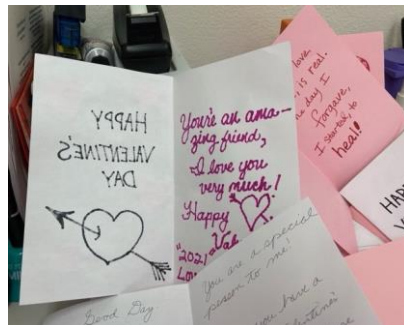 HAPPY
VALENTINE'S
DAY
You're an ama-
zing friend,
I love you
very much!
Happy
Val
"2021"
love
is real.
day I
forgave,
I started to
heal!
HAP
V
You are a special
person to me!
you have a
Good Day